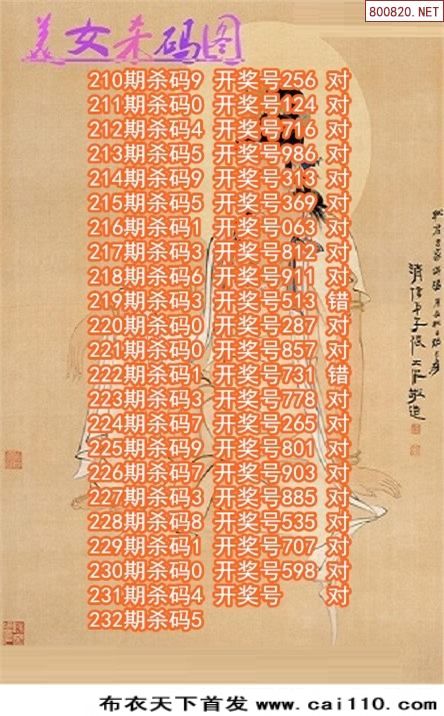 800820.NET
美女杀码图
210期杀码9 开奖号256 对
211期杀码0 开奖号124 对
212期杀码4 开奖号716 对
213期杀码5 开奖号986 对
214期杀码9 开奖号313 对
215期杀码5 开奖号369 对
216期杀码1 开奖号063 对
217期杀码3 开奖号812 对
218期杀码6 开奖号911 对
219期杀码3 开奖号513 错
220期杀码0 开奖号287 对
221期杀码0 开奖号857 对
222期杀码1 开奖号731 错
223期杀码3 开奖号778 对
224期杀码7 开奖号265 对
225期杀码9 开奖号801 对
226期杀码7 开奖号903 对
227期杀码3 开奖号885 对
228期杀码8 开奖号535 对
229期杀码1 开奖号707 对
230期杀码0 开奖号598 对
231期杀码4 开奖号 对
232期杀码5
布衣天下首发 www.cai110.com